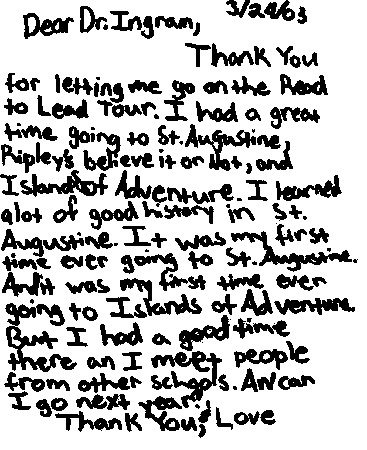 3/24/03
Dear Dr. Ingram,
Thank You
for letting me go on the Read
to Lead Tour. I had a great
time going to St. Augustine,
Ripley's believe it or Not, and
Islands of Adventure. I learned
alot of good history in St.
Augustine. It was my first
time ever going to St. Augustine.
An it was my first time ever
going to Islands of Adventure.
But I had a good time
there an I meet people
from other schools. An can
I go next year?
Thank You, & Love